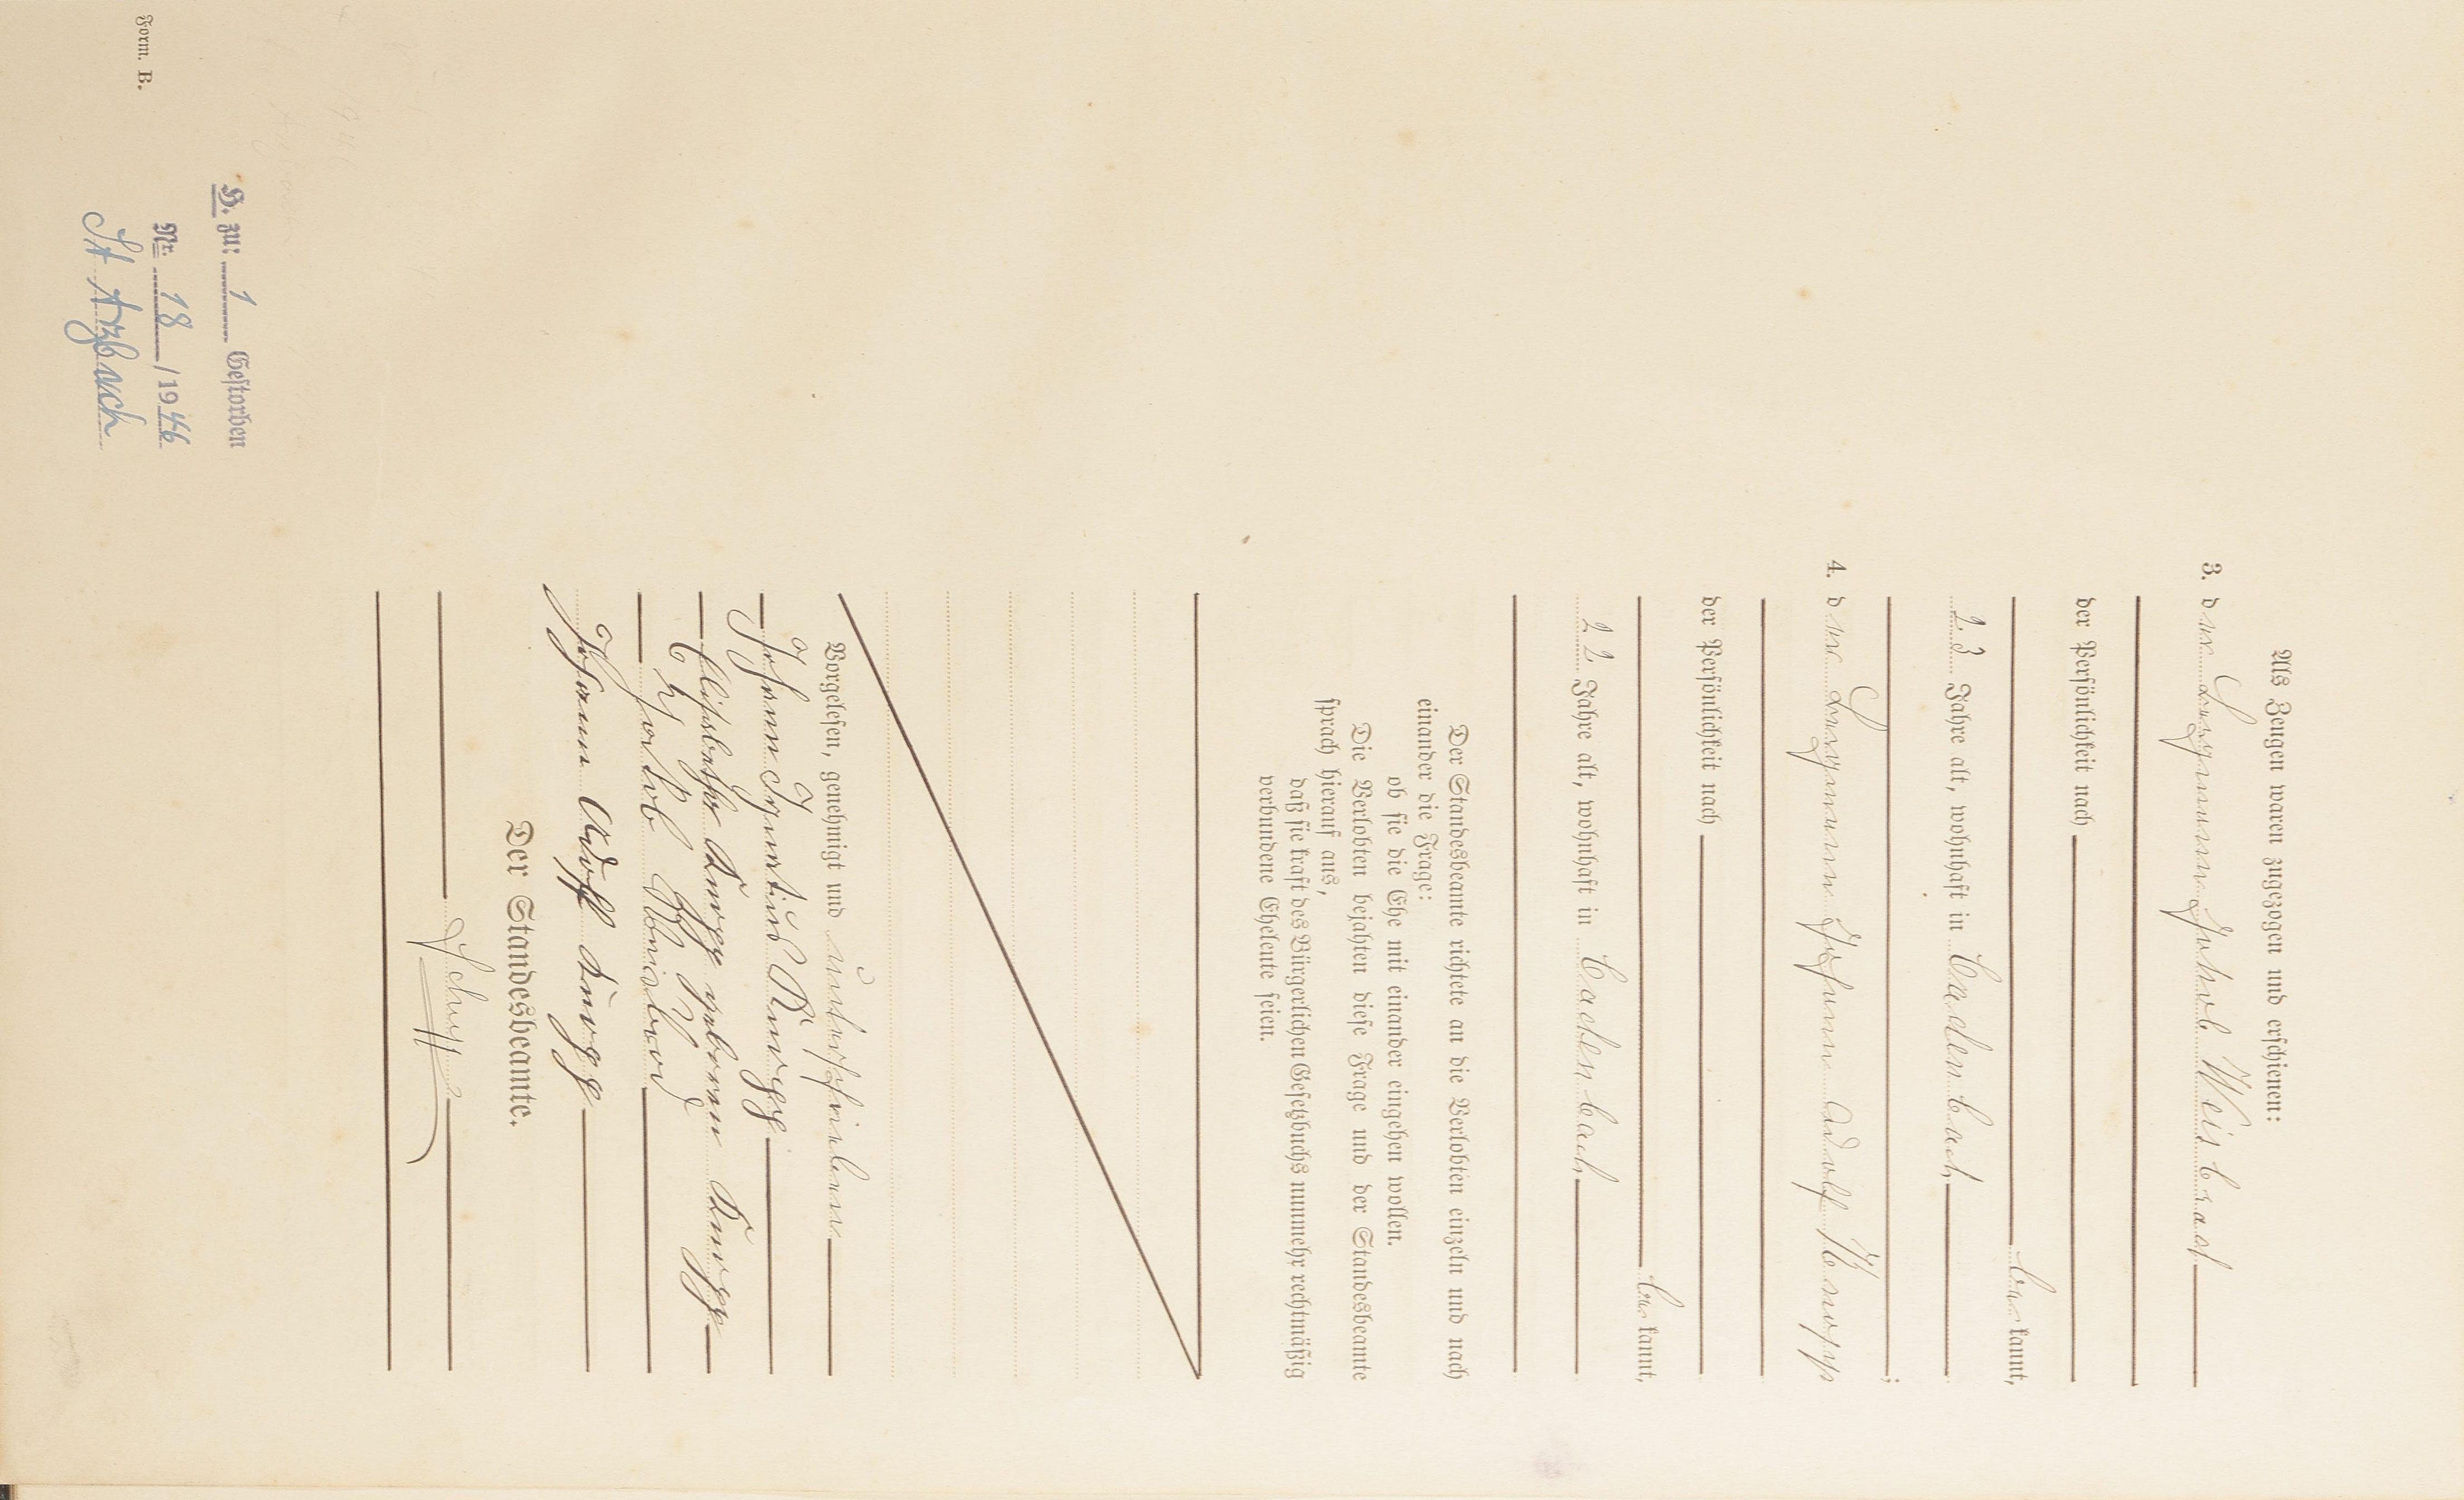 Als Zeugen waren zugezogen und erschienen:
3. der Bergmann Jakob Weisbrod
der Persönlichkeit nach
be kannt,
23 Jahre alt, wohnhaft in Cadenbach
;
4. der Bergmann Johann Adolf Knopp
der Persönlichkeit nach
be kannt,
22 Jahre alt, wohnhaft in Cadenbach
Der Standesbeamte richtete an die Verlobten einzeln und nach
einander die Frage:
ob sie die Ehe mit einander eingehen wollen.
Die Verlobten bejahten diese Frage und der Standesbeamte
sprach hierauf aus,
daß sie kraft des Bürgerlichen Gesetzbuchs nunmehr rechtmäßig
verbundene Eheleute seien.
Vorgelesen, genehmigt und unterschrieben
Johann Ignatius Knopp
Elisabetha Knopp geborene Knopp
Jakob Weisbrod
Johann Adolf Knopp
Der Standesbeamte.
H. zu: 1 Gestorben
Nr. 18 / 1946
St Arzbach
Form. B.